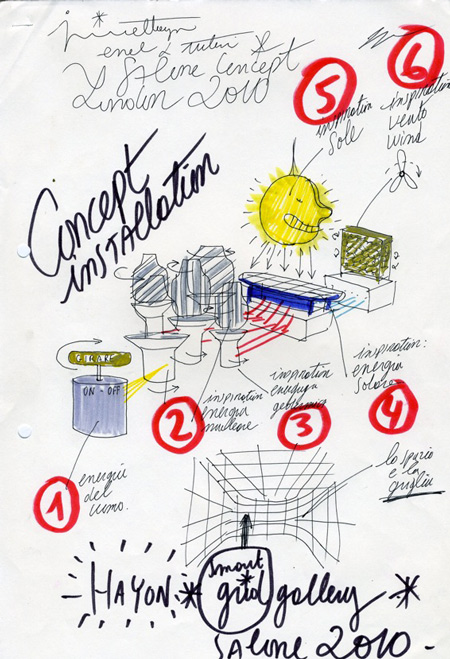 enel
x Salone Concept
London 2010
5
6
inspiration
Sole
inspiration
Vento
wind
Concept
installation
GIRAR
ON - OFF
inspiration:
energia
Solare
inspiration
energia
geotermica
inspiration
energia
nucleare
2
3
4
1
energia
del
uomo.
lo spazio
e la
griglia
HAYON * smart grid gallery *
SALONE 2010 -